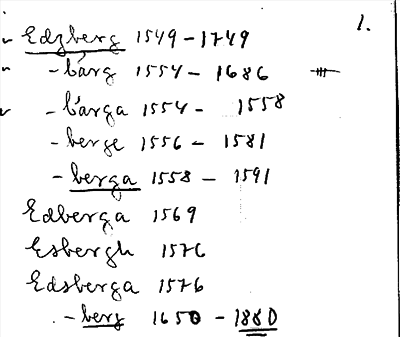 1.
Edzberg 1549-1749
-bärg 1554 - 1686
-bärga 1554 - 1558
-berge 1556 - 1581
-berga 1558 - 1591
Edberga 1569
Esbergh 1576
Edsberga 1576
-berg 1650 - 1880